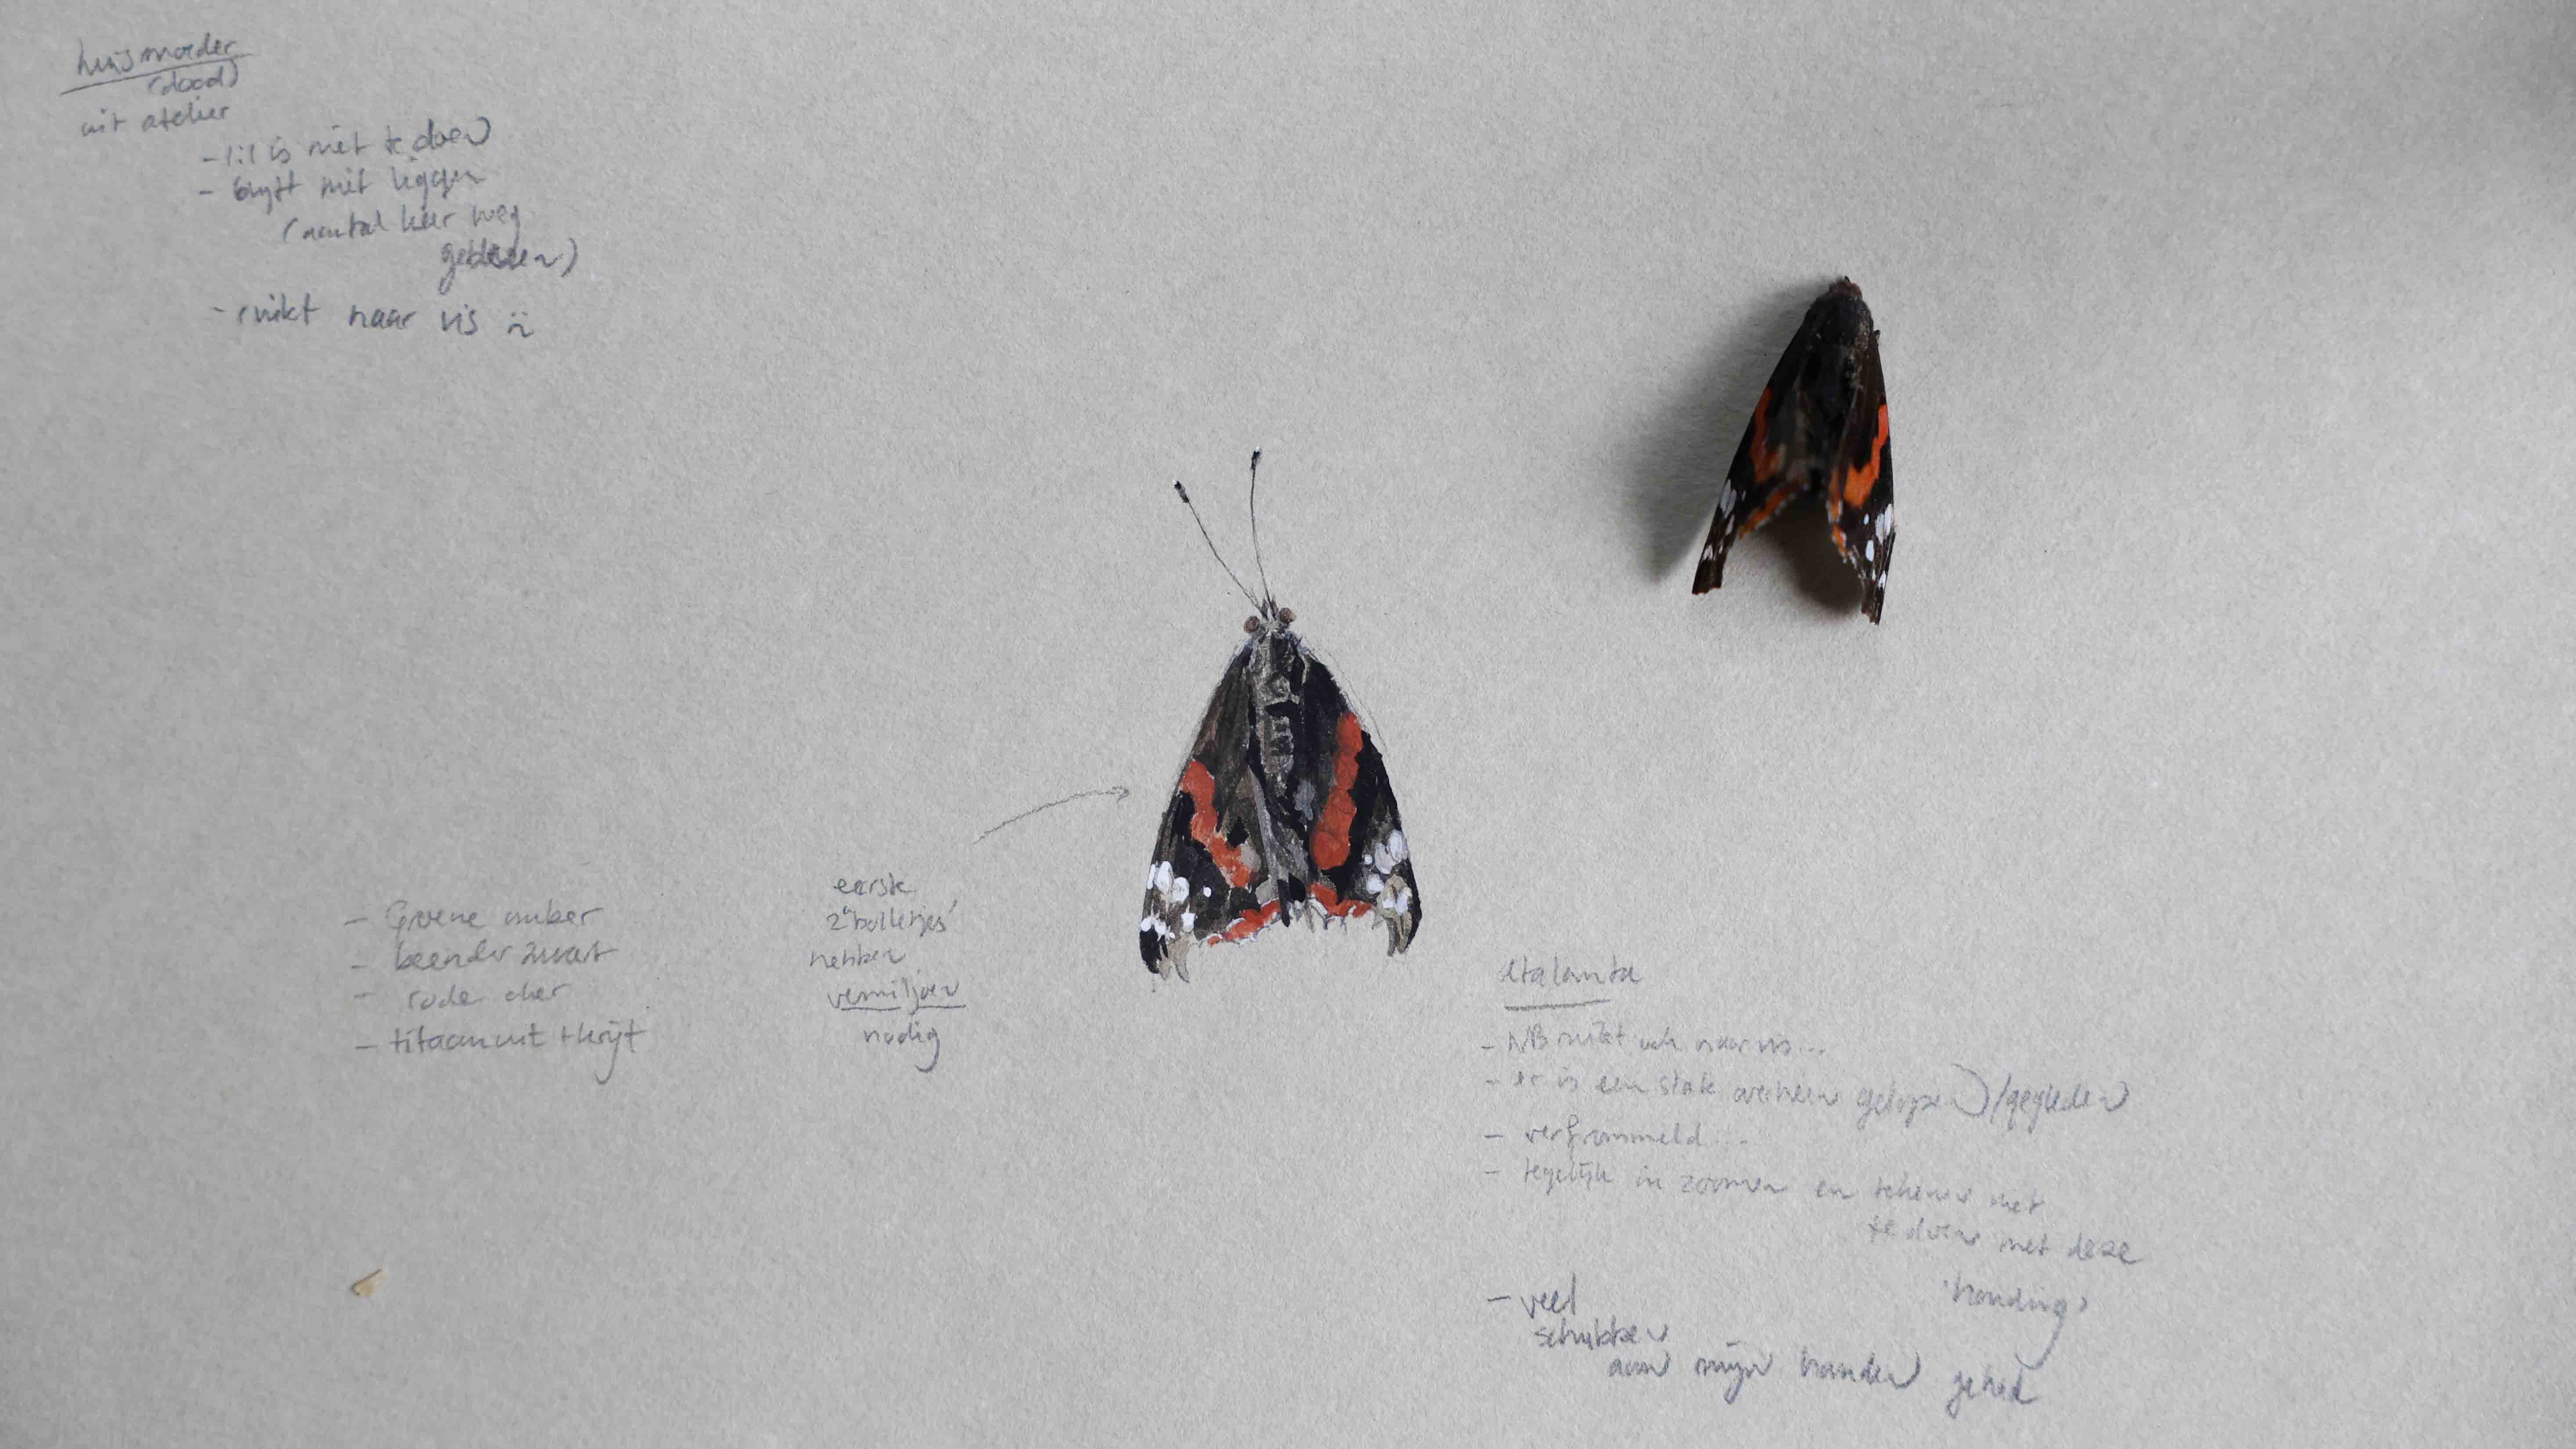 huismoeder
(dood)
uit atelier
- is niet te doen
- blijft niet liggen
(aantal keer weg
geblazen)
- ruikt naar vis
- Groene omber
- beender zwart
- rode oker
- titaanwit + krijt
eerste
2 "bolletjes"
hebben
vermiljoen
nodig
atalanta
- NB ruikt ook naar vis...
- er is een slak overheen gelopen/gegleden
- verfrommeld...
- tegelijk in zoomen en tekenen niet
te doen met deze
'houding'
- veel
schubben
aan mijn handen gehad